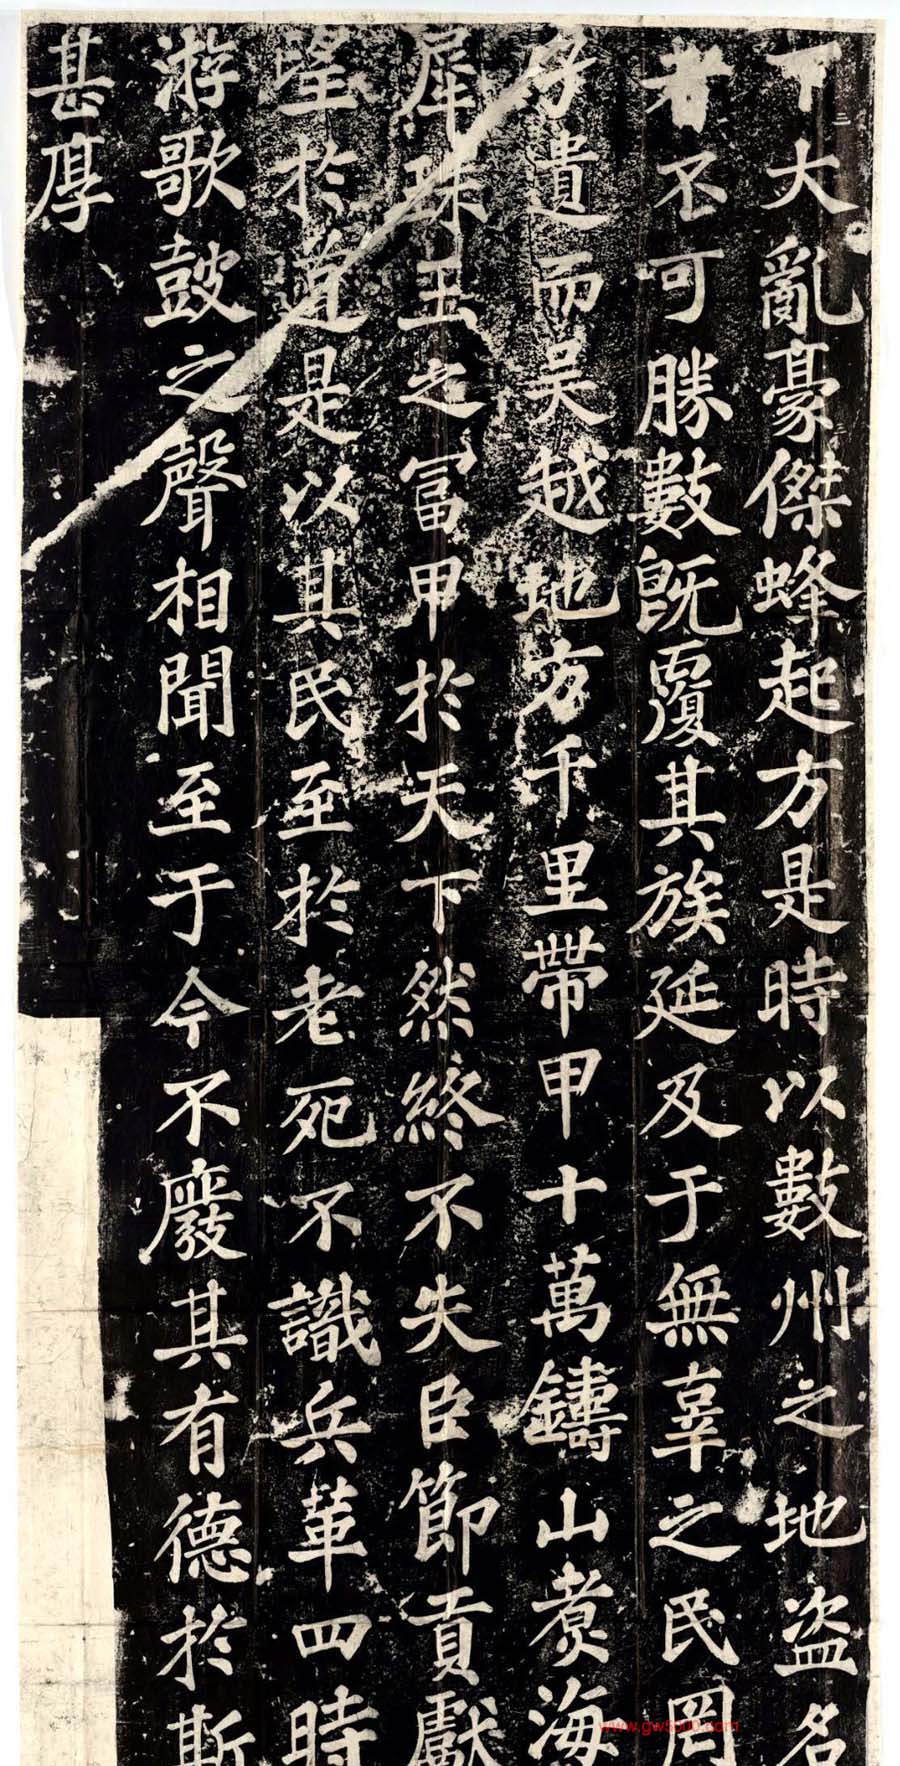 下大亂豪傑蜂起方是時以數州之地盜名
者不可勝數既覆其族延及于無辜之民罔
孑遺而吴越地方千里帶甲十萬鑄山煮海
犀珠玉之富甲於天下然終不失臣節貢獻
望於道是以其民至於老死不識兵革四時
游歌鼓之聲相聞至于今不廢其有德於斯
甚厚